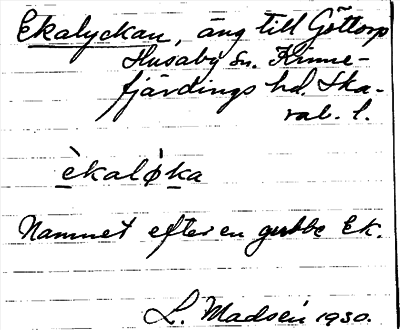 Ekalyckan, äng till Göttorp
Husaby sn. Kinne-
fjärdings hd. Ska-
rab. l.
èkalø̀ka
Namnet efter en gubbe Ek.
L. Madsén 1930.